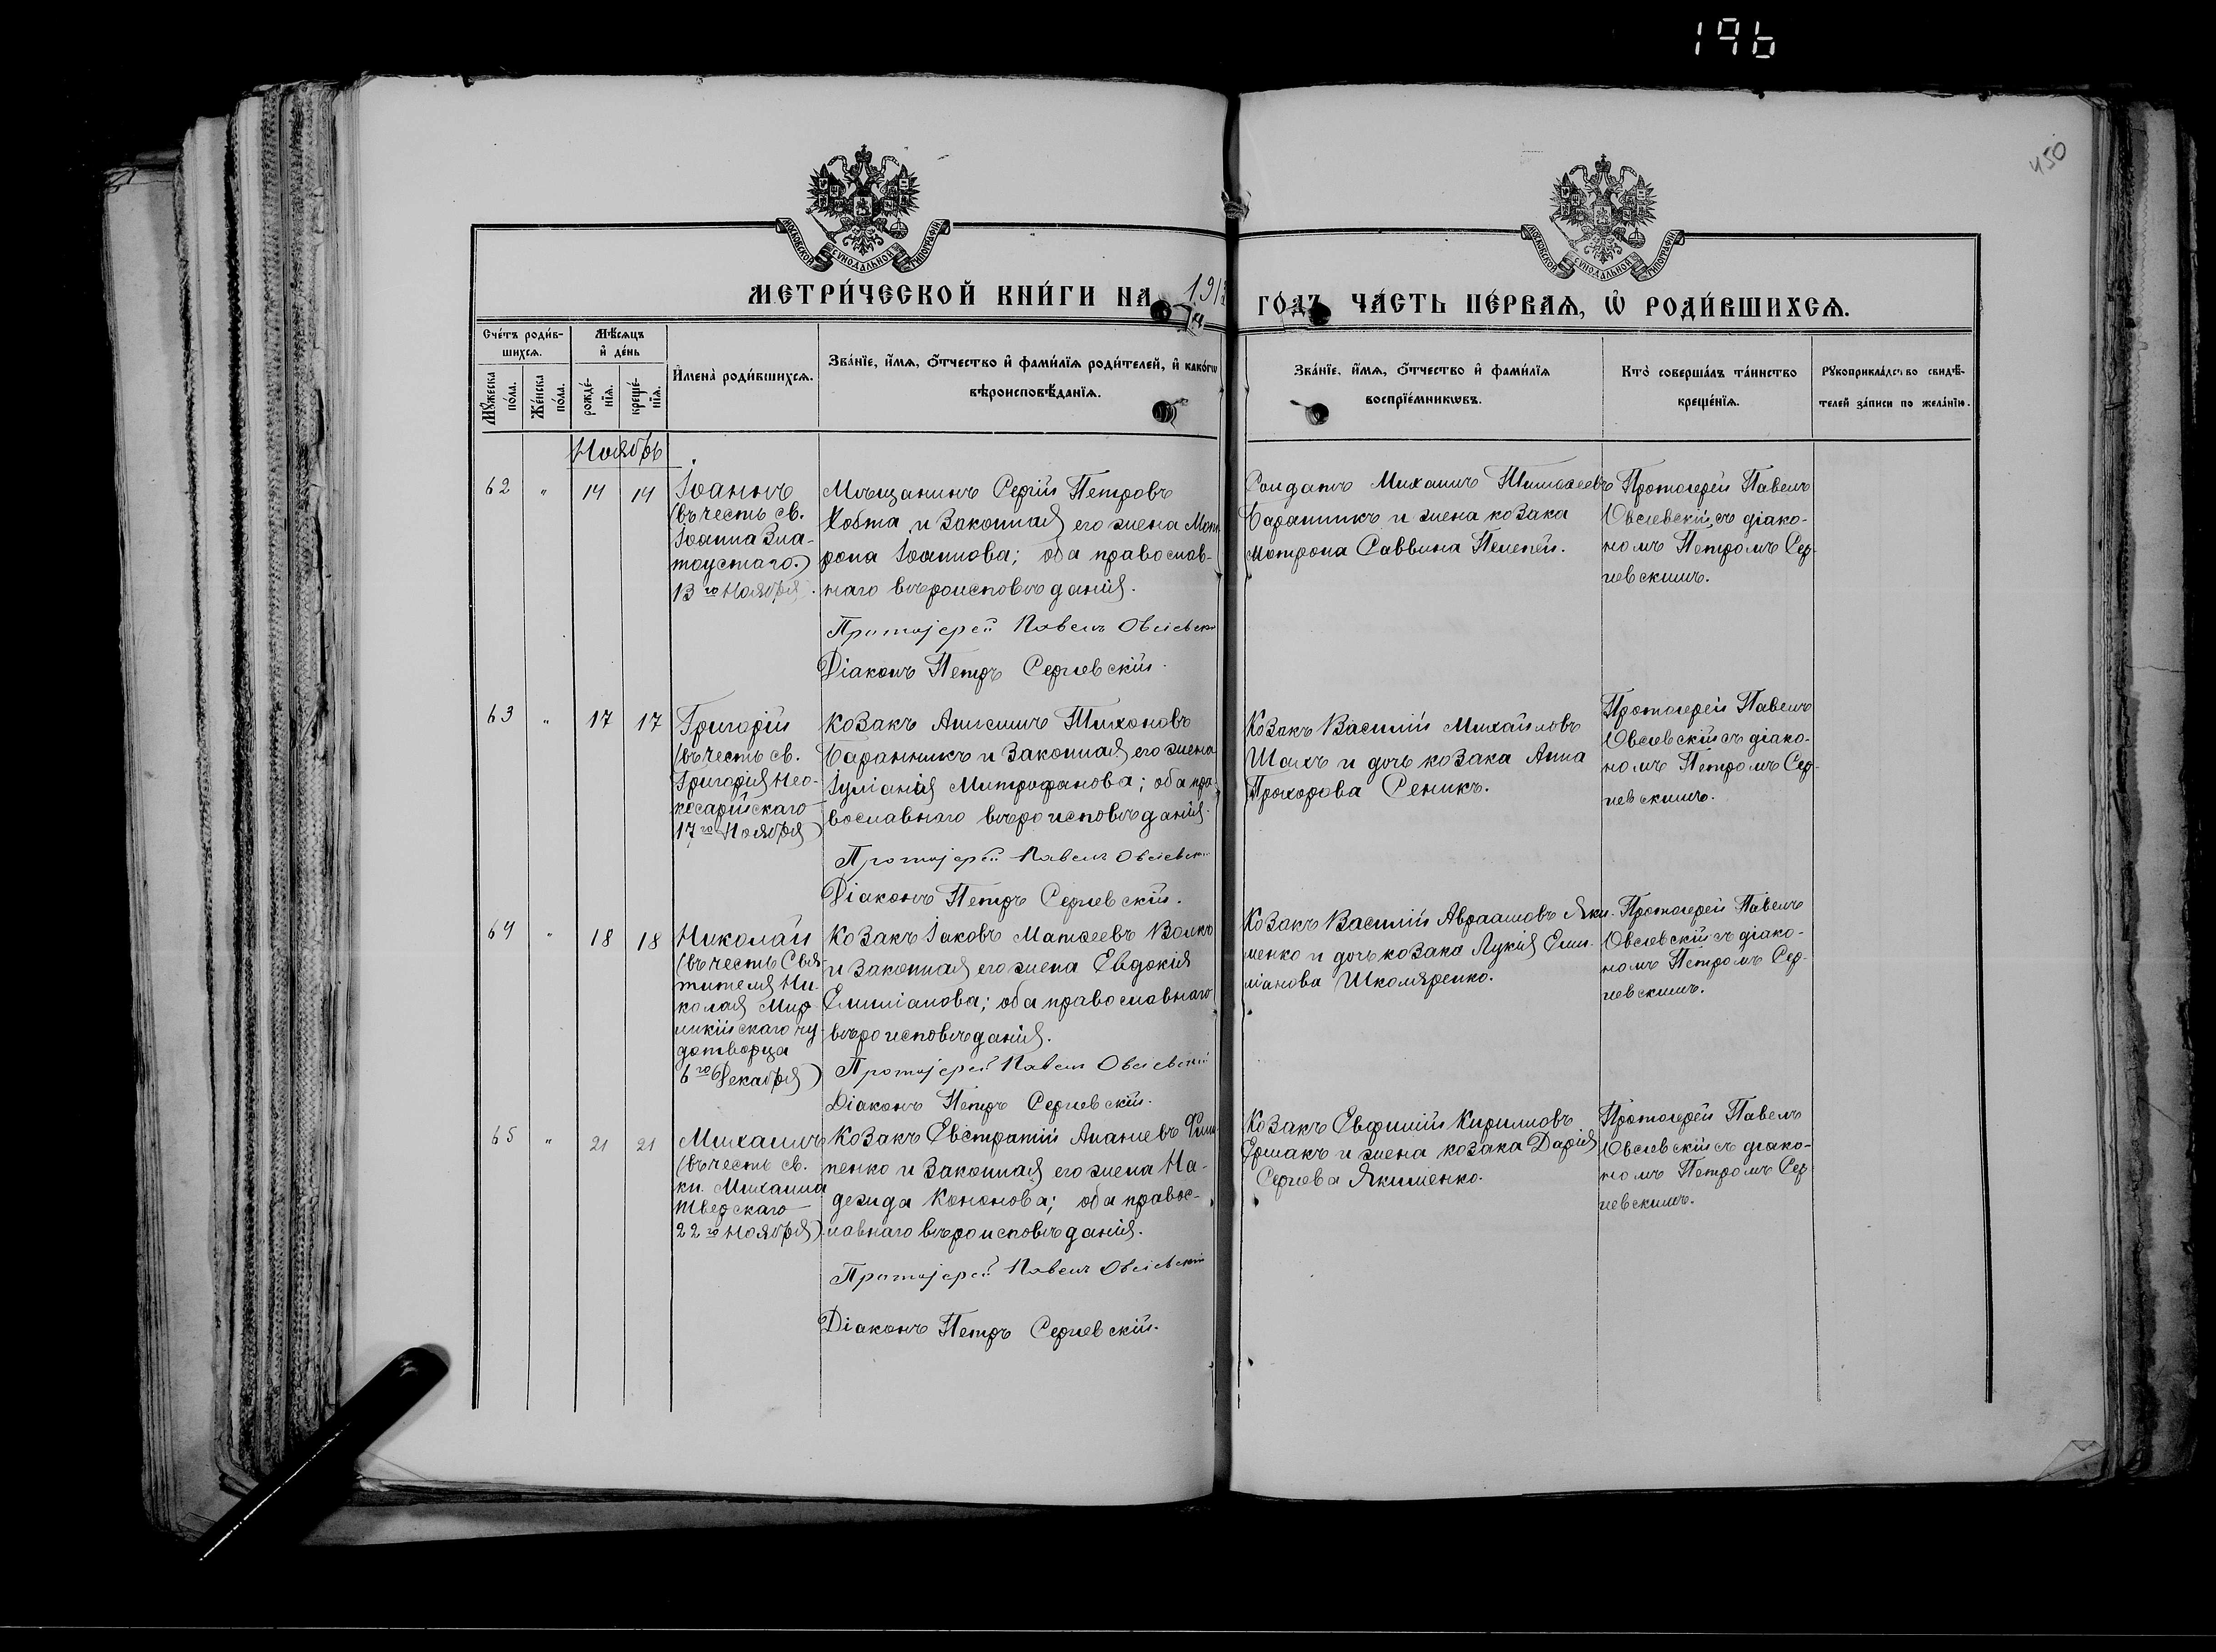 196
450
МОСКОВСКОЙ СѴНОДАЛЬНОЙ ТИПОГРАФІИ
МОСКОВСКОЙ СѴНОДАЛЬНОЙ ТИПОГРАФІИ
МЕТРИ́ЧЕСКОЙ КНИ́ГИ НА 191
ГО́ДЪ ЧА́СТЬ ПЕ́РВАѦ, Ѡ҆ РОДИ́ВШИХСѦ.
Сче́тъ роди́в-
шихсѧ.
Мꙋ́жеска по́ла.
Же́нска по́ла.
Мѣ́сѧцъ
и҆ де́нь
рожде́-
нїѧ.
креще́-
нїѧ.
И҆мена̀ роди́вшихсѧ.
Зва́нїе, и҆́мѧ, ѻ҆́тчество и҆ фами́лїѧ роди́телей, и҆ како́гѡ
вѣроисповѣ́данїѧ.
Зва́нїе, и҆́мѧ, ѻ҆́тчество и҆ фами́лїѧ
воспрїе́мникѡвъ.
Кто̀ соверша́лъ та́инство
креще́нїѧ.
Рꙋкоприкла́дство свидѣ́-
телей за́писи по жела́нїю.
Ноябрь
62 " 14 14
Іоаннъ
(въ честь св.
Іоанна Зла-
тоустаго.)
13го Ноября.
Мѣщанинъ Сергій Петровъ
Хобта и законная его жена Мат
рона Іоаннова; оба православ-
наго вѣроисповѣданія.
Протоіерей Павелъ Овсіевск
Діаконъ Петръ Сергіевскій.
Солдатъ Михаилъ Тимоѳеевъ
Баранникъ и жена козака
Матрона Саввина Пелепей.
Протоіерей Павелъ
Овсіевскій, съ діако-
номъ Петромъ Сер-
гіевскимъ.
63 " 17 17
Григорій
(въ честь св.
Григорія Нео-
кесарійскаго
17го Ноября)
Козакъ Анисимъ Тихоновъ
Баранникъ и законная его жена
Іуліанія Митрофанова; оба пра-
вославнаго вѣроисповѣданія.
Протоіерей Павелъ Овсіевск
Діаконъ Петръ Сергіевскій.
Козакъ Василій Михайловъ
Шахъ и дочь козака Анна
Прохорова Сеникъ.
Протоіерей Павелъ
Овсіевскій съ діако-
номъ Петромъ Сер-
гіевскимъ.
64 " 18 18
Николай
(въ честь Свя-
тителя Ни-
колая Мир
ликійскаго чу
дотворца
6го Декабря)
Козакъ Іаковъ Матѳеевъ Волко
и законная его жена Евдокія
Емиліанова; оба православнаго
вѣроисповѣданія.
Протоіерей Павелъ Овсіевскій
Діаконъ Петръ Сергіевскій.
Козакъ Василій Авраамовъ Яки-
менко и дочь козака Лукія Еми-
ліанова Школяренко.
Протоіерей Павелъ
Овсіевскій съ діако-
номъ Петромъ Сер-
гіевскимъ.
65 " 21 21
Михаилъ
(въ честь св.
кн. Михаила
Тверскаго
22го Ноября)
Козакъ Евстратій Ананіевъ Фили
пенко и законная его жена На-
дежда Кононова; оба правос-
лавнаго вѣроисповѣданія.
Протоіерей Павелъ Овсіевскій
Діаконъ Петръ Сергіевскій.
Козакъ Евфимій Кирилловъ
Ермакъ и жена козака Дарія
Сергіева Якименко.
Протоіерей Павелъ
Овсіевскій съ діако-
номъ Петромъ Сер-
гіевскимъ.